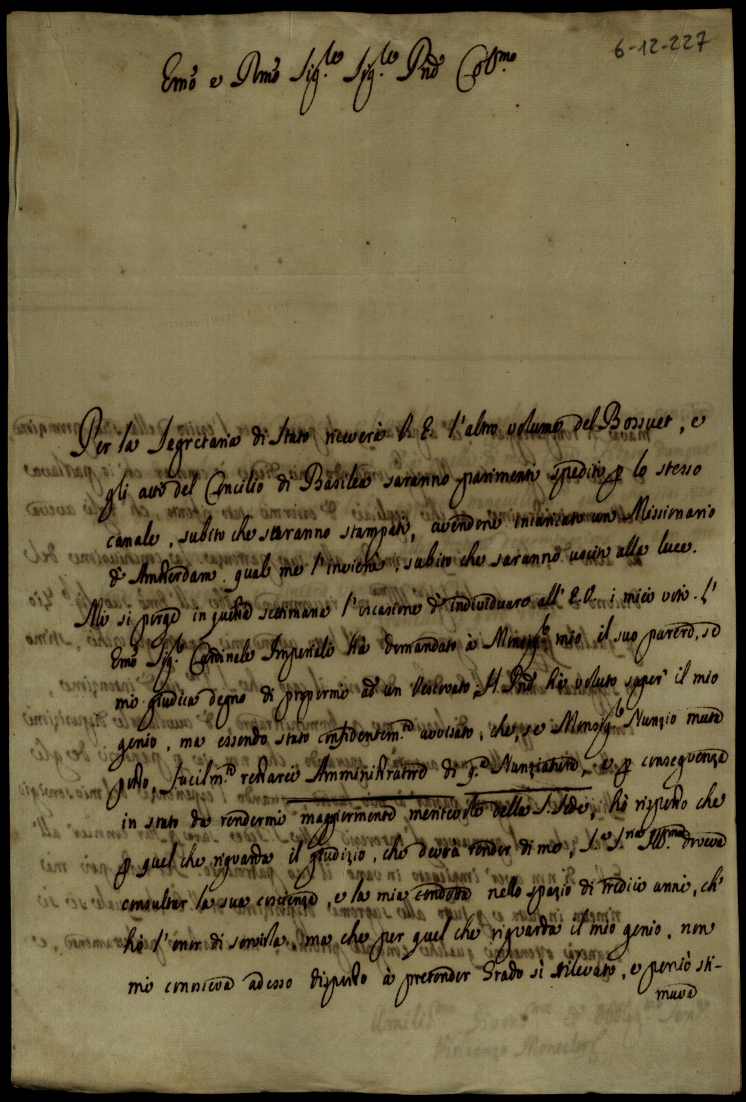 6-12-227
Emo e Rmo Sig.re Sig.re Pne Colmo
Per la Segretaria di Stato riceverà V. E. l'altro volume del Bossuet, e
gli atti del Concilio di Basilea saranno parimenti spediti p lo stesso
canale, subito che saranno stampati, avendone incaricato un Missionario
d'Amsterdam, qual me l'invierà, subito che saranno usciti alla luce.
Mi si porge in questa settimana l'occasione d'individuare all' E.V. i miei voti. L'
Emo Sig.r Cardinale Imperiali hà domandato à Monsig.r mio il suo parere, se
mi giudica degno di propormi ad un Vescovato. Il Pne hà voluto saper il mio
genio, ma essendo stato confidentem.te avvisato, che, se Monsig.r Nunzio muta
posto, facilm.te resterei Amministratore di q.ta Nunziatura, e p conseguenza
in stato da rendermi maggiormente meritevole della S. Sede, hò risposto che
p quel che riguarda il giudizio, che dovrà render di me, S.a S.ma Ill.ma doveva
consultar la sua coscienza, e la mia condotta nello spazio di tredici anni, ch'
hò l'onor di servirla, ma che per quel che riguarda il mio genio, non
mi conosceva adesso disposto à pretender Grado sì rilevato, e perciò sti-
mava